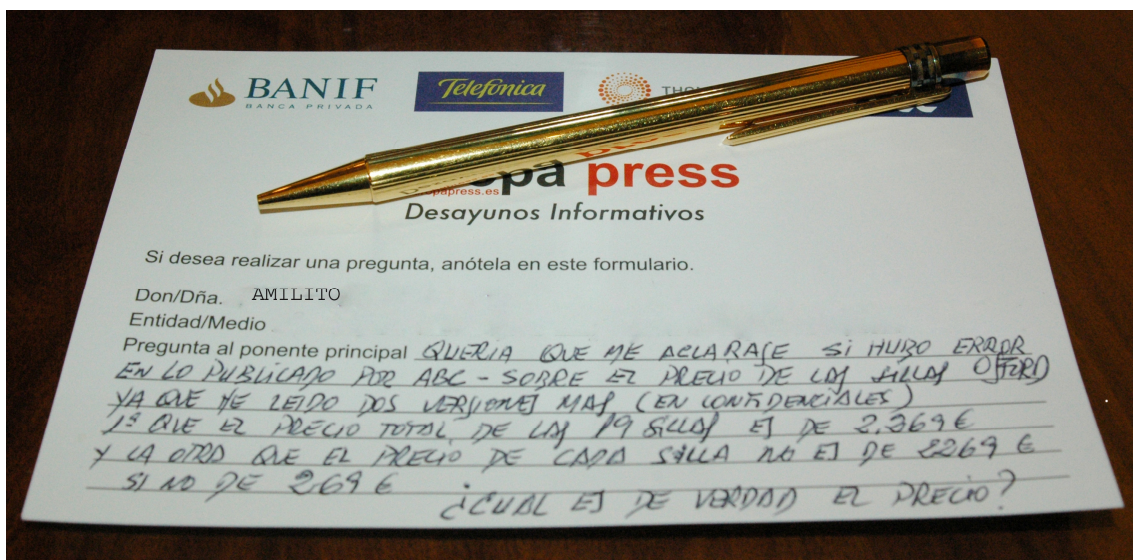 BANIF
BANCA PRIVADA
Telefónica
THO
pa press
apress.es
Desayunos Informativos
Si desea realizar una pregunta, anótela en este formulario.
Don/Dña. AMILITO
Entidad/Medio
Pregunta al ponente principal QUERIA QUE ME ACLARASE SI HUBO ERROR
EN LO PUBLICADO POR ABC - SOBRE EL PRECIO DE LAS SILLAS OFFORD
YA QUE HE LEIDO DOS VERSIONES MAS (EN CONFIDENCIALES)
1ª QUE EL PRECIO TOTAL DE LAS 19 SILLAS ES DE 2.269 €
Y LA OTRA QUE EL PRECIO DE CADA SILLA NO ES DE 2269 €
SI NO DE 269 €
¿CUAL ES DE VERDAD EL PRECIO?